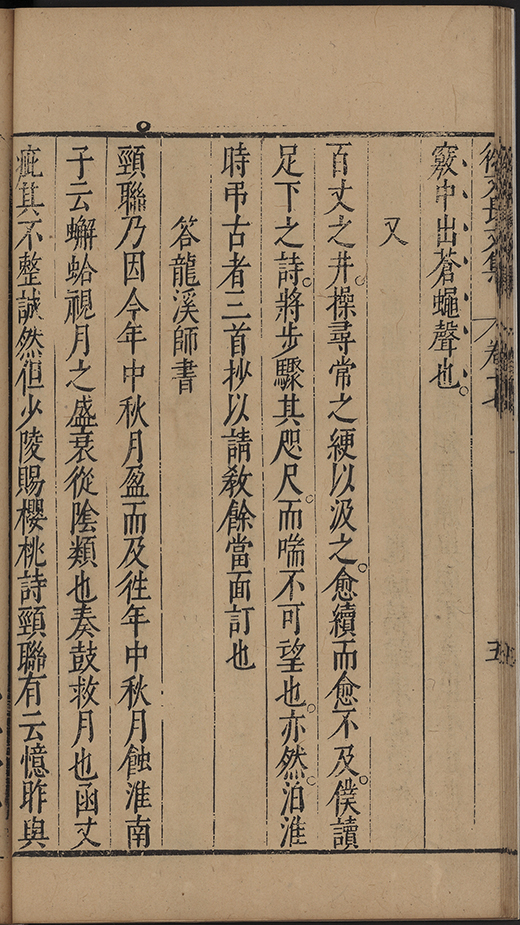 徐文長文集 卷十七 五
竅中出蒼蠅聲也。
又
百丈之井。操尋常之綆以汲之。愈續而愈不及。僕讀
足下之詩。將步驟其咫尺。而喘不可望也。亦然。泊淮
時弔古者三首抄以請敎餘當面訂也
答龍溪師書
頸聯乃因今年中秋月盈而及徃年中秋月蝕淮南
子云蠏蛤視月之盛衰從陰類也奏鼓救月也函丈
疵其不整誠然但少陵賜櫻桃詩頸聯有云憶昨與